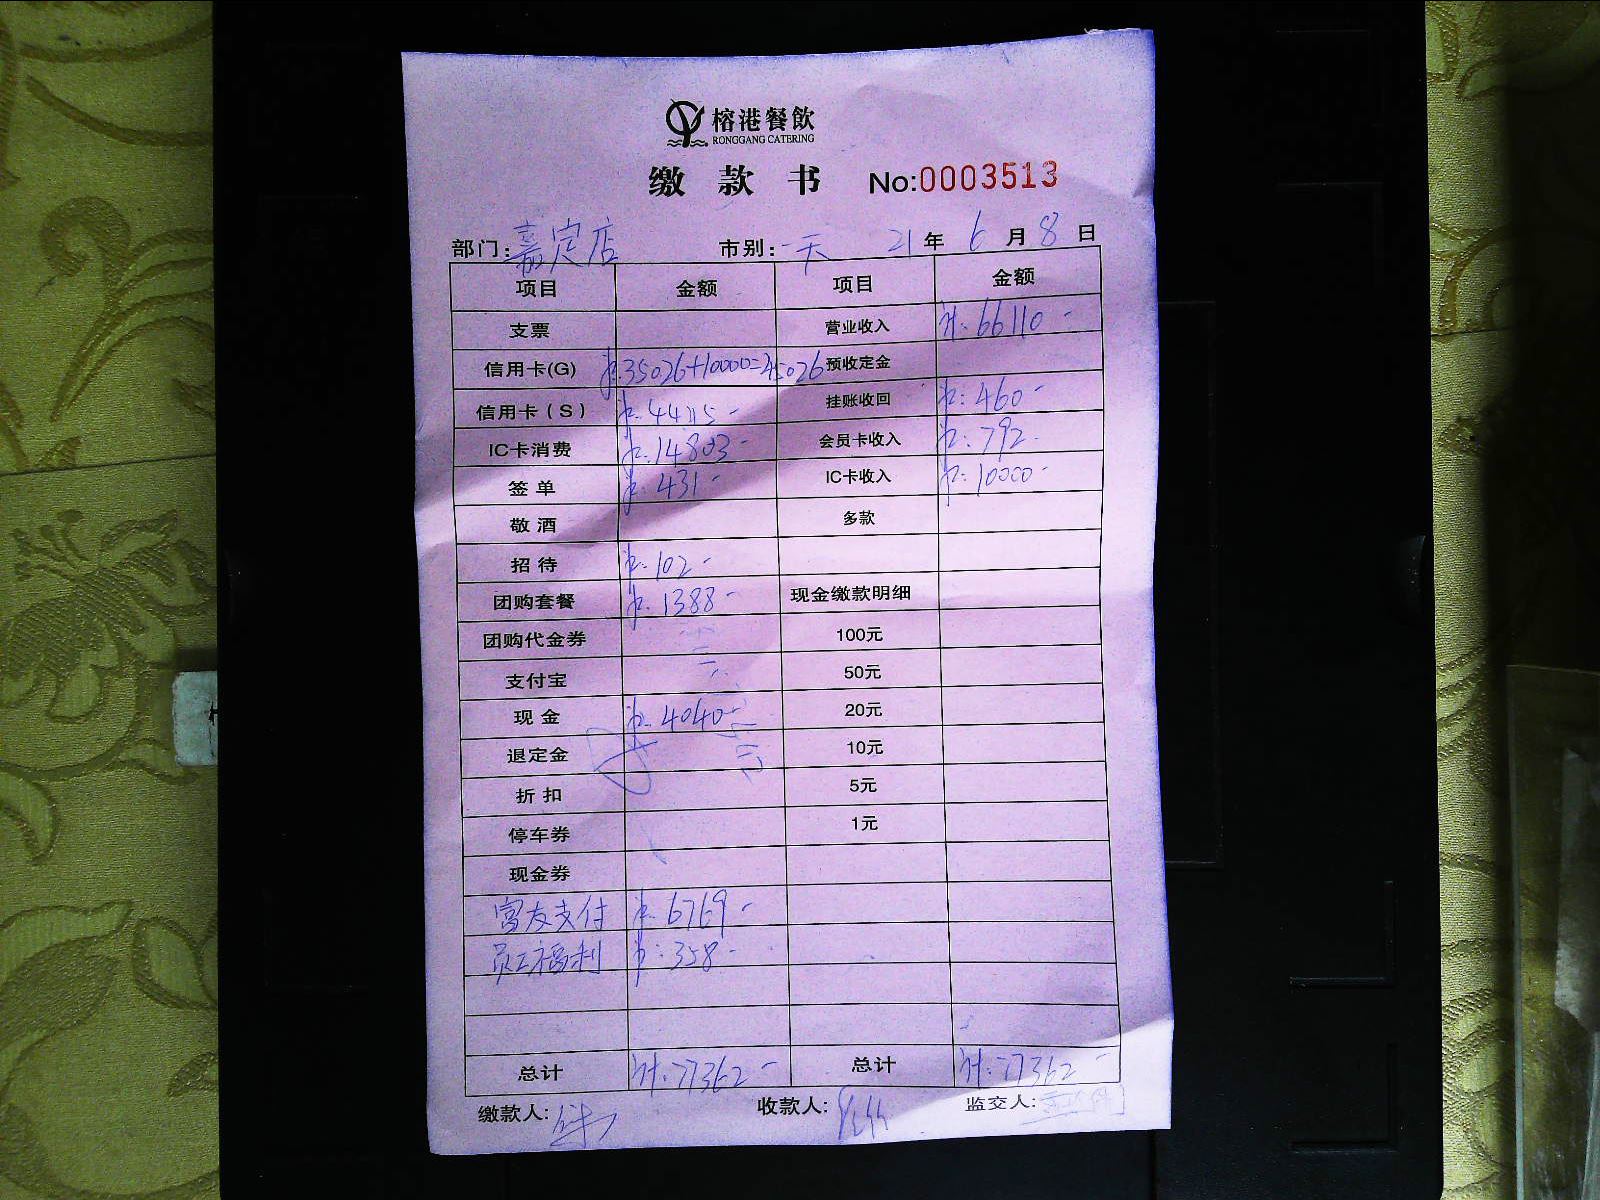 榕港餐飲
RONGGANG CATERING
缴款书 No:0003513
部门: 嘉定店 市别: 一天 21年 6月 8日
项目 金额 项目 金额
支票 营业收入 计:66110-
信用卡(G) 35026+10000=45026 预收定金
信用卡(S) 4445- 挂账收回 460-
IC卡消费 14803- 会员卡收入 792-
签单 431- IC卡收入 10000-
敬酒 多款
招待 102-
团购套餐 1388- 现金缴款明细
团购代金券 100元
支付宝 50元
现金 4040- 20元
退定金 10元
折扣 5元
停车券 1元
现金券
富友支付 6769-
员工福利 358-
总计 计:77362- 总计 计:77362-
缴款人: 收款人: 监交人: